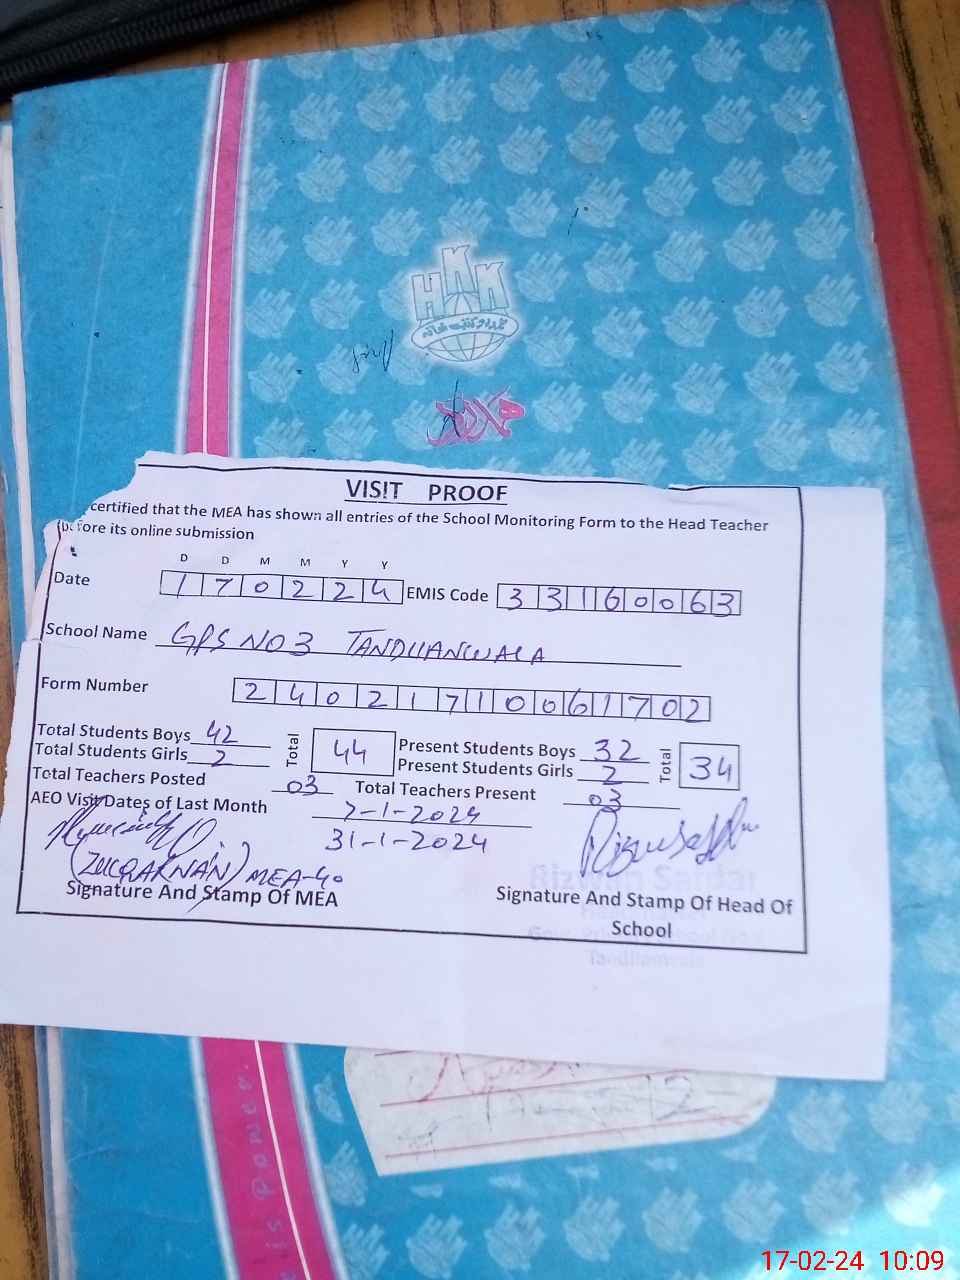 HKK
VISIT PROOF
certified that the MEA has shown all entries of the School Monitoring Form to the Head Teacher
before its online submission
D D M M Y Y
Date 170224 EMIS Code 33160063
School Name GPS NO 3 TANDLIANWALA
Form Number 24021710061702
Total Students Boys 42 Total 44 Present Students Boys 32 Total 34
Total Students Girls 2 Present Students Girls 2
Total Teachers Posted 03 Total Teachers Present 03
AEO Visit Dates of Last Month 7-1-2024
31-1-2024
(ZULQARNAIN) MEA-40
Signature And Stamp Of MEA
Rizwan Safdar
Signature And Stamp Of Head Of
School
Tandlianwala
is Power.
17-02-24 10:09